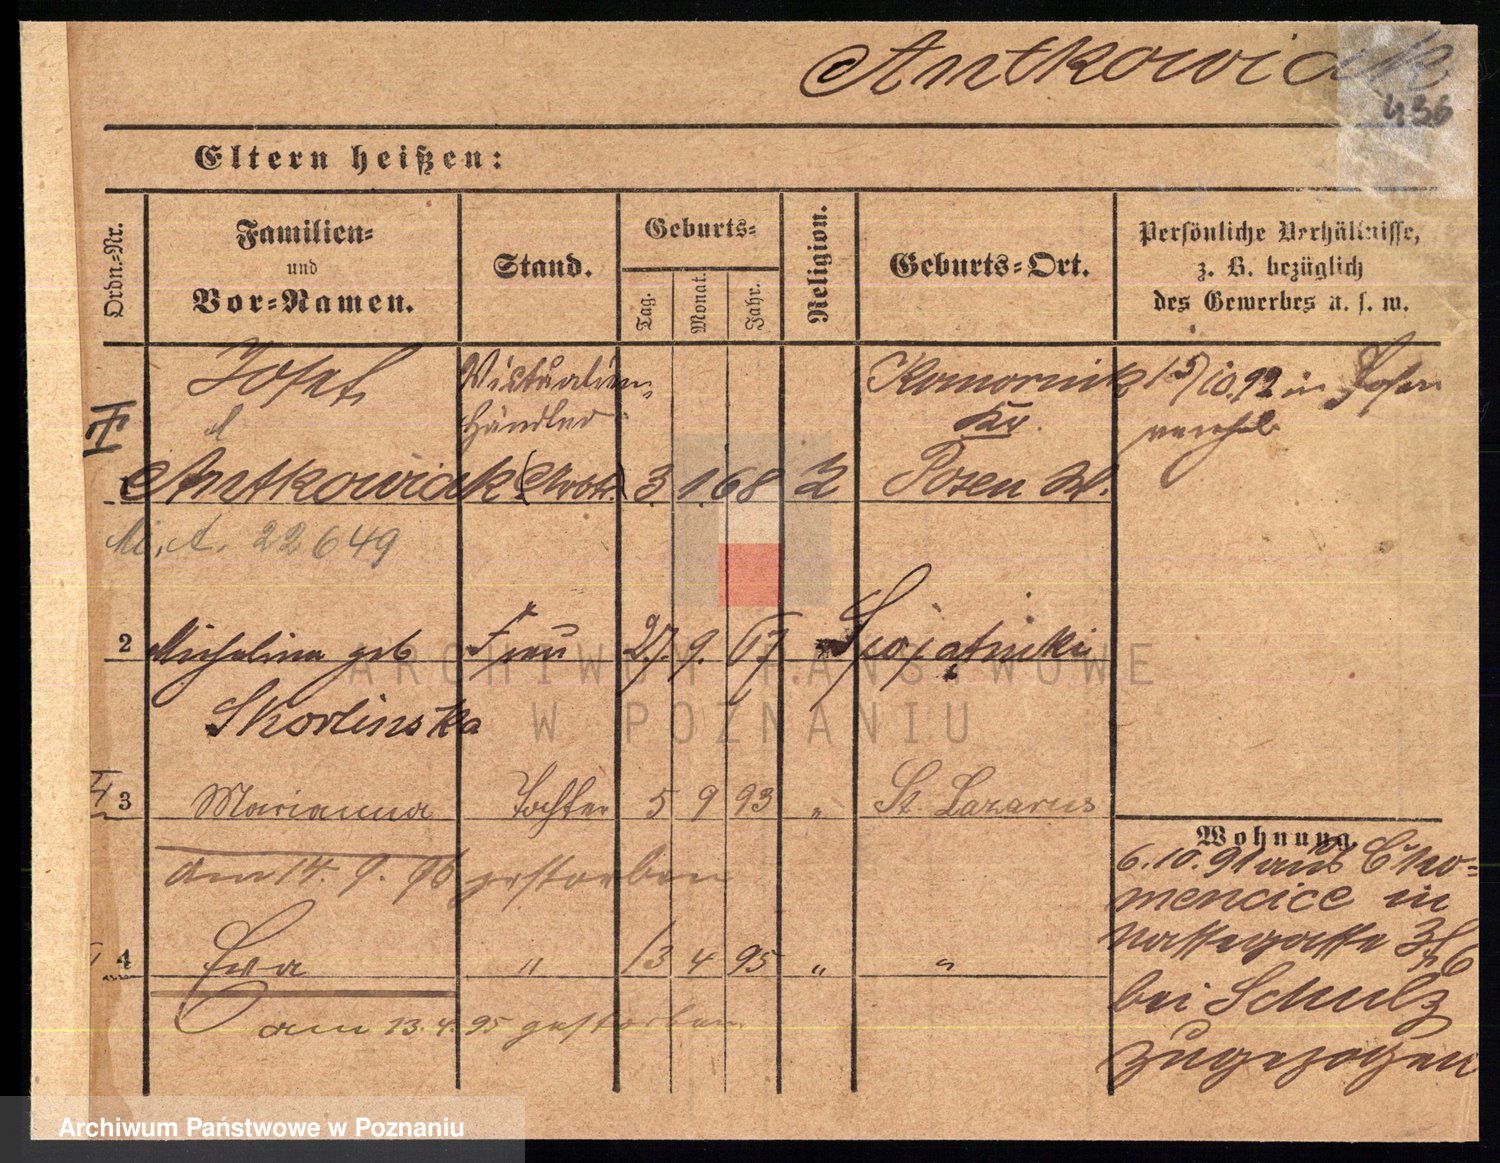 Antkowiak
436
Eltern heißen:
Ordn.-Nr.
Familien-
und
Vor-Namen.
Stand.
Geburts-
Tag.
Monat.
Jahr.
Religion.
Geburts-Ort.
Persönliche Verhältnisse,
z. B. bezüglich
des Gewerbes u. s. w.
Josef Victualien- Komornik 15/10.92 in Posen
Händler Kr. verehel
1 Antkowiak 3. 1. 68 Posen W.
A. 22649
2 Michalina geb Frau 27. 9. 67
Skorlinska
3 Marianna Tochter 5 9 93 " St. Lazarus
am 14. 9. 96 gestorben
4 Eva " 13 4 95 " "
am 23. 4. 95 gestorben
Wohnung.
6.10.91 aus Cho-
mencice in
bei Schulz
zugezogen
ARCHIWUM PAŃSTWOWE
W POZNANIU
Archiwum Państwowe w Poznaniu